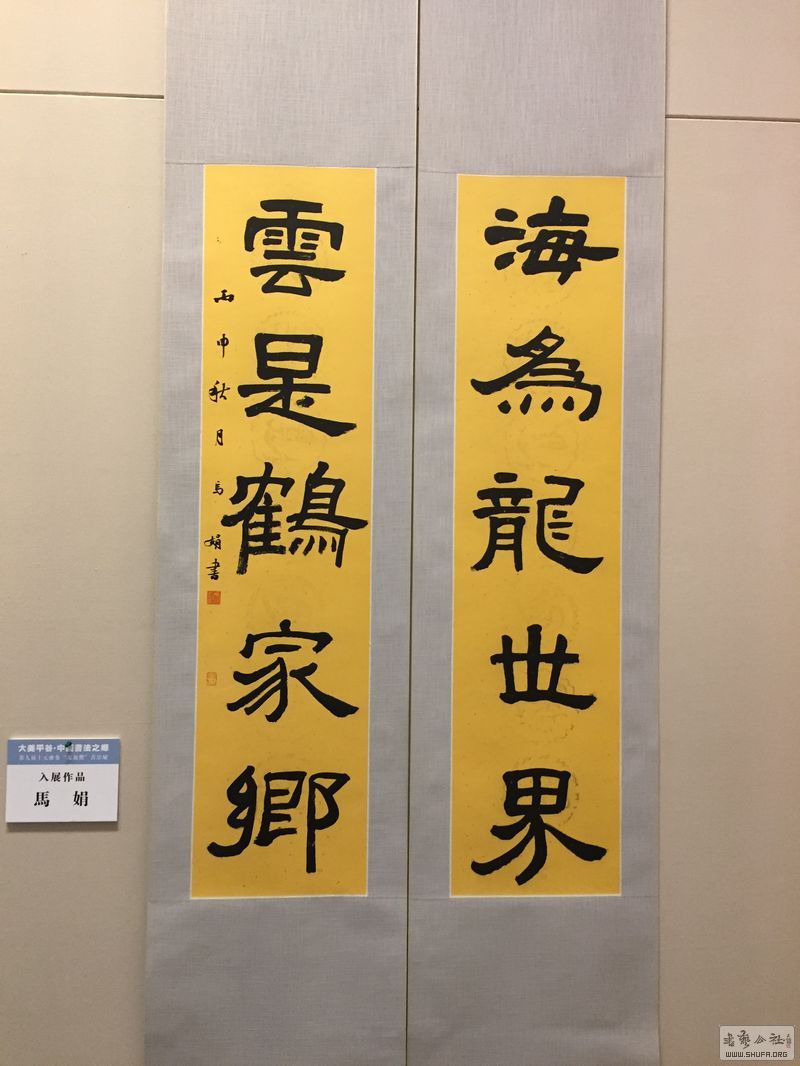 海為龍世界
雲是鶴家鄉
丙申秋月馬娟書
大美平谷·中國書法之鄉
入展作品
馬 娟
書法公社
WWW.SHUFA.ORG